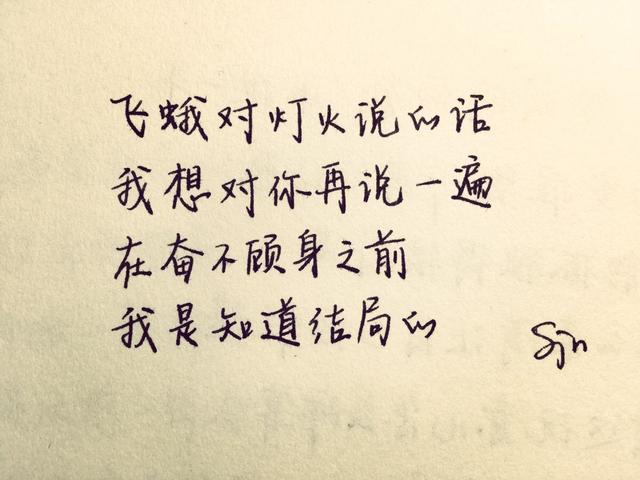 飞蛾对灯火说的话
我想对你再说一遍
在奋不顾身之前
我是知道结局的
Sjn